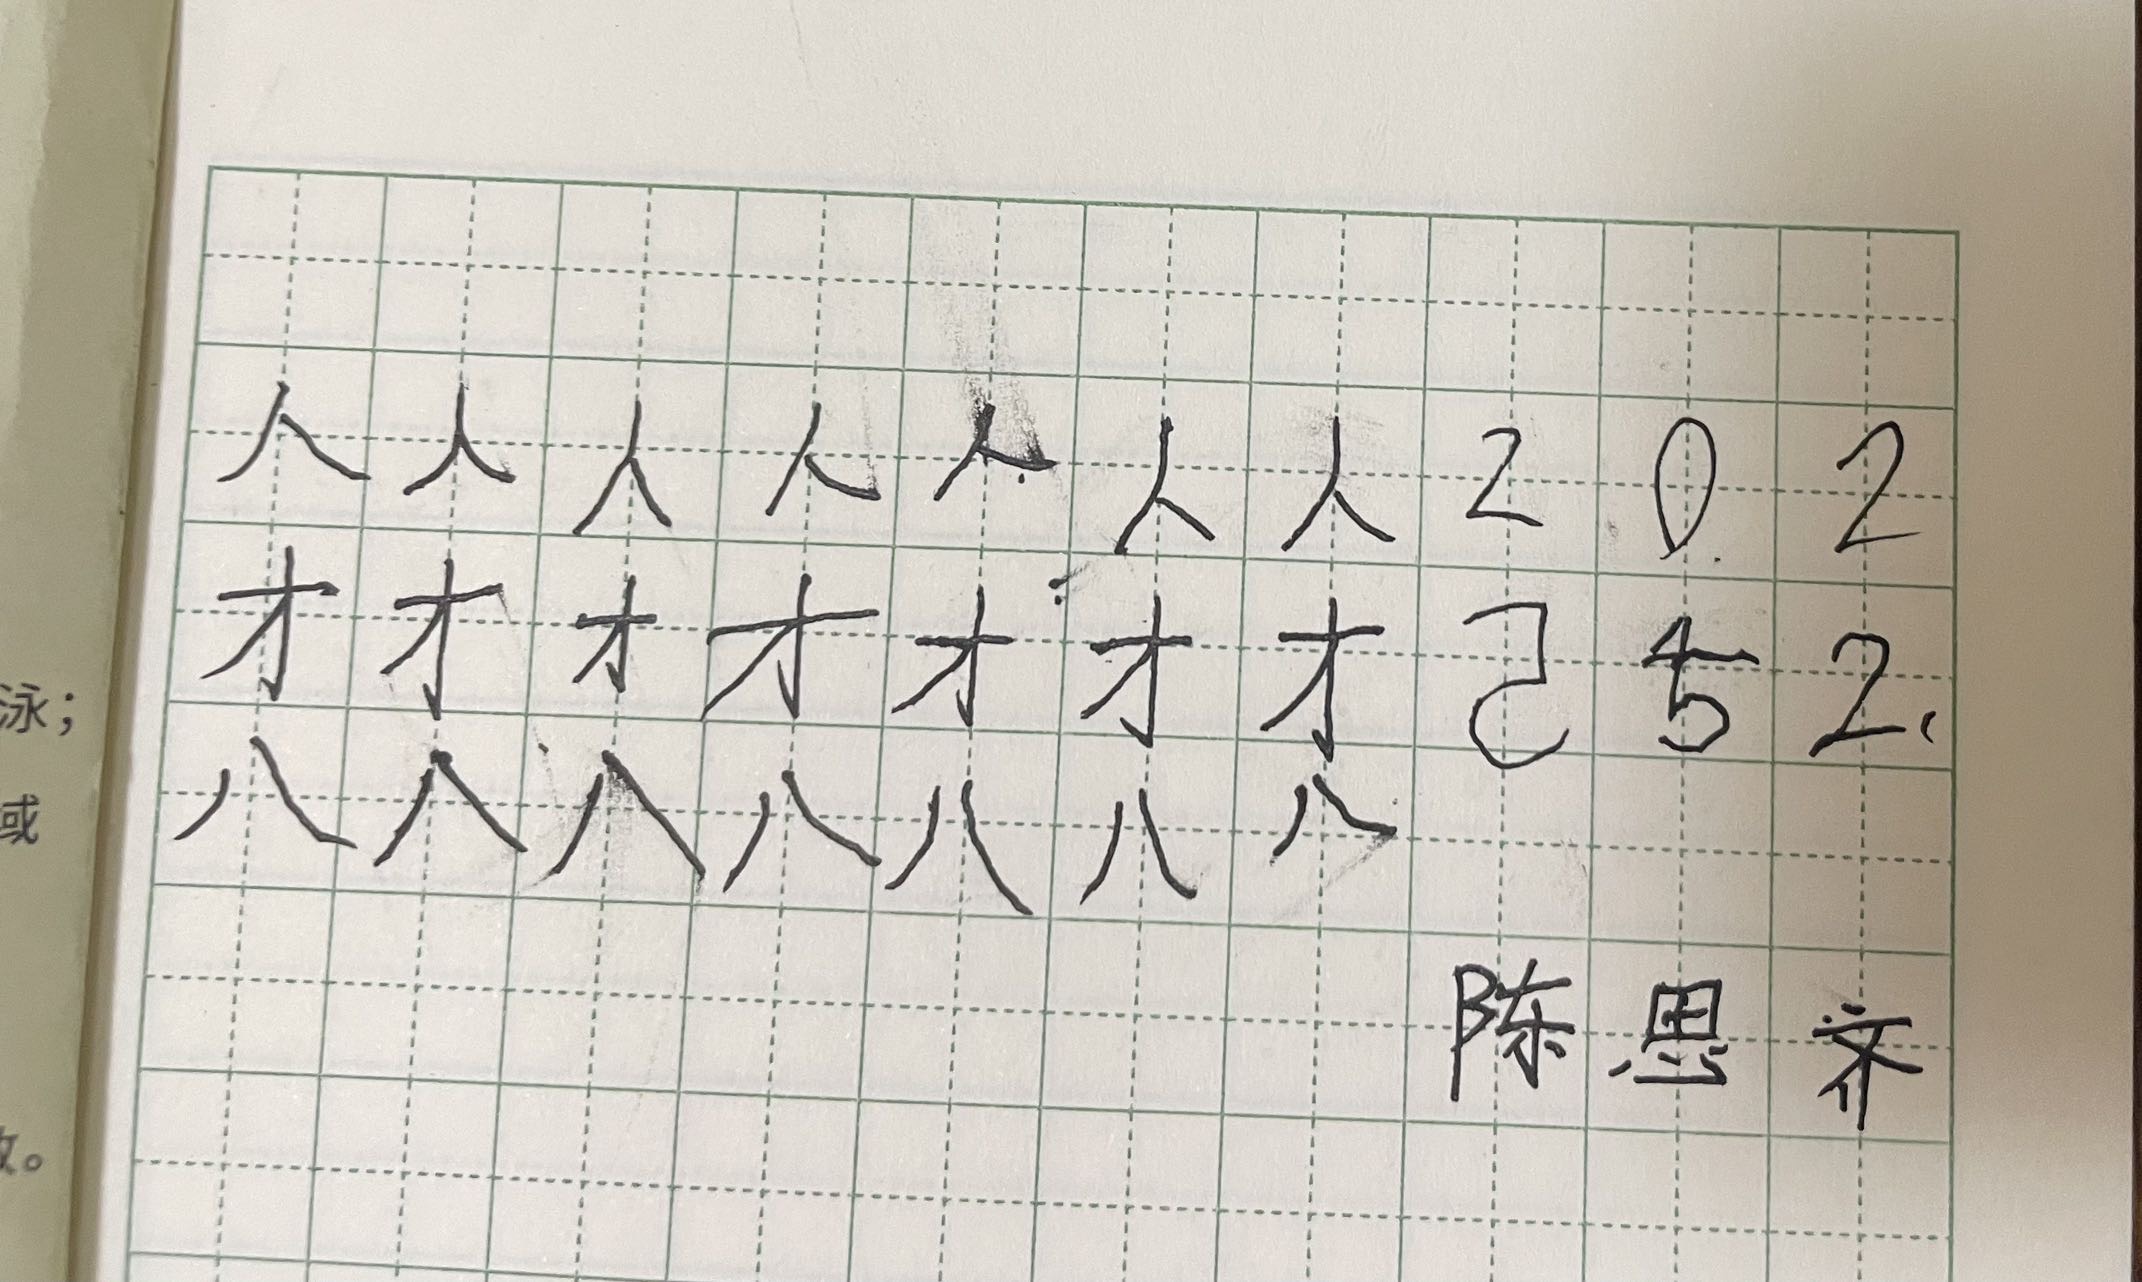 人人人人人人人202
才才才才才才才252.
八八八八八八八
陈思齐
泳；
域
。